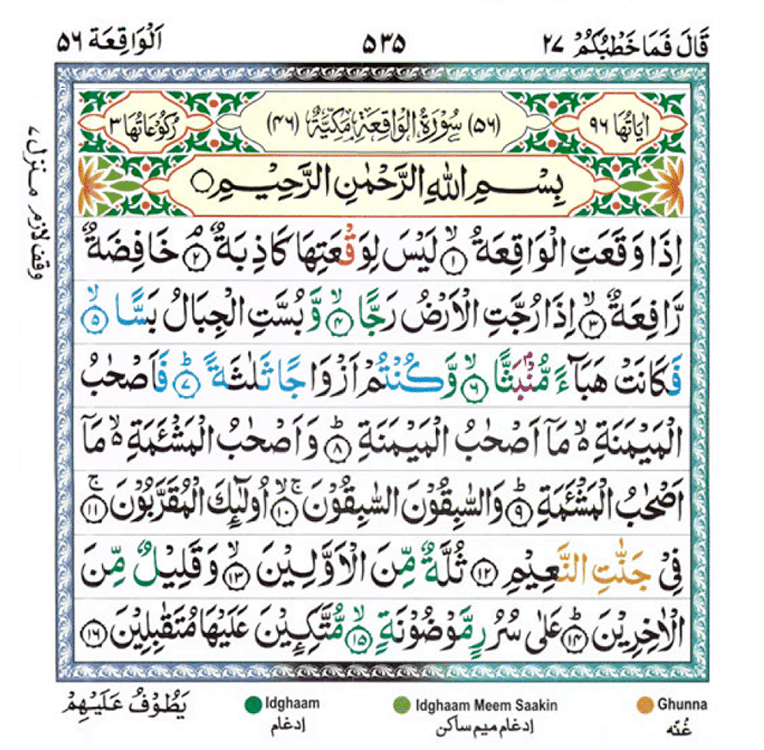 قَالَ فَمَا خَطْبُكُمْ ۲۷ ۵۳۵ اَلْوَاقِعَة ۵۶
اٰيَاتُهَا ۹۶ (۵۶) سُوْرَةُ الْوَاقِعَةِ مَكِّيَّةٌ (۴۶) رُكُوْعَاتُهَا ۳
بِسْمِ اللّٰهِ الرَّحْمٰنِ الرَّحِيْمِ ○
اِذَا وَقَعَتِ الْوَاقِعَةُ ۙ‏﴿۱﴾ لَيْسَ لِوَقْعَتِهَا كَاذِبَةٌ ۘ‏﴿۲﴾ خَافِضَةٌ
رَّافِعَةٌ ۙ‏﴿۳﴾ اِذَا رُجَّتِ الْاَرْضُ رَجًّا ۙ‏﴿۴﴾ وَّبُسَّتِ الْجِبَالُ بَسًّا ۙ‏﴿۵﴾
فَكَانَتْ هَبَآءً مُّنْۢبَثًّا ۙ‏﴿۶﴾ وَّكُنْتُمْ اَزْوَاجًا ثَلٰثَةً ؕ‏﴿۷﴾ فَاَصْحٰبُ
الْمَيْمَنَةِ ۙ۬ مَاۤ اَصْحٰبُ الْمَيْمَنَةِ ؕ‏﴿۸﴾ وَاَصْحٰبُ الْمَشْـَٔمَةِ ۙ۬ مَاۤ
اَصْحٰبُ الْمَشْـَٔمَةِ ؕ‏﴿۹﴾ وَالسّٰبِقُوْنَ السّٰبِقُوْنَ ۚۙ‏﴿۱۰﴾ اُولٰٓئِكَ الْمُقَرَّبُوْنَ ۚ‏﴿۱۱﴾
فِيْ جَنّٰتِ النَّعِيْمِ ﴿۱۲﴾ ثُلَّةٌ مِّنَ الْاَوَّلِيْنَ ۙ‏﴿۱۳﴾ وَقَلِيْلٌ مِّنَ
الْاٰخِرِيْنَ ؕ‏﴿۱۴﴾ عَلٰى سُرُرٍ مَّوْضُوْنَةٍ ۙ‏﴿۱۵﴾ مُّتَّكِـِٕيْنَ عَلَيْهَا مُتَقٰبِلِيْنَ ﴿۱۶﴾
يَطُوْفُ عَلَيْهِمْ
وقف لازم منزل ۷
Idghaam
إدغام
Idghaam Meem Saakin
إدغام میم ساکن
Ghunna
غُنّه